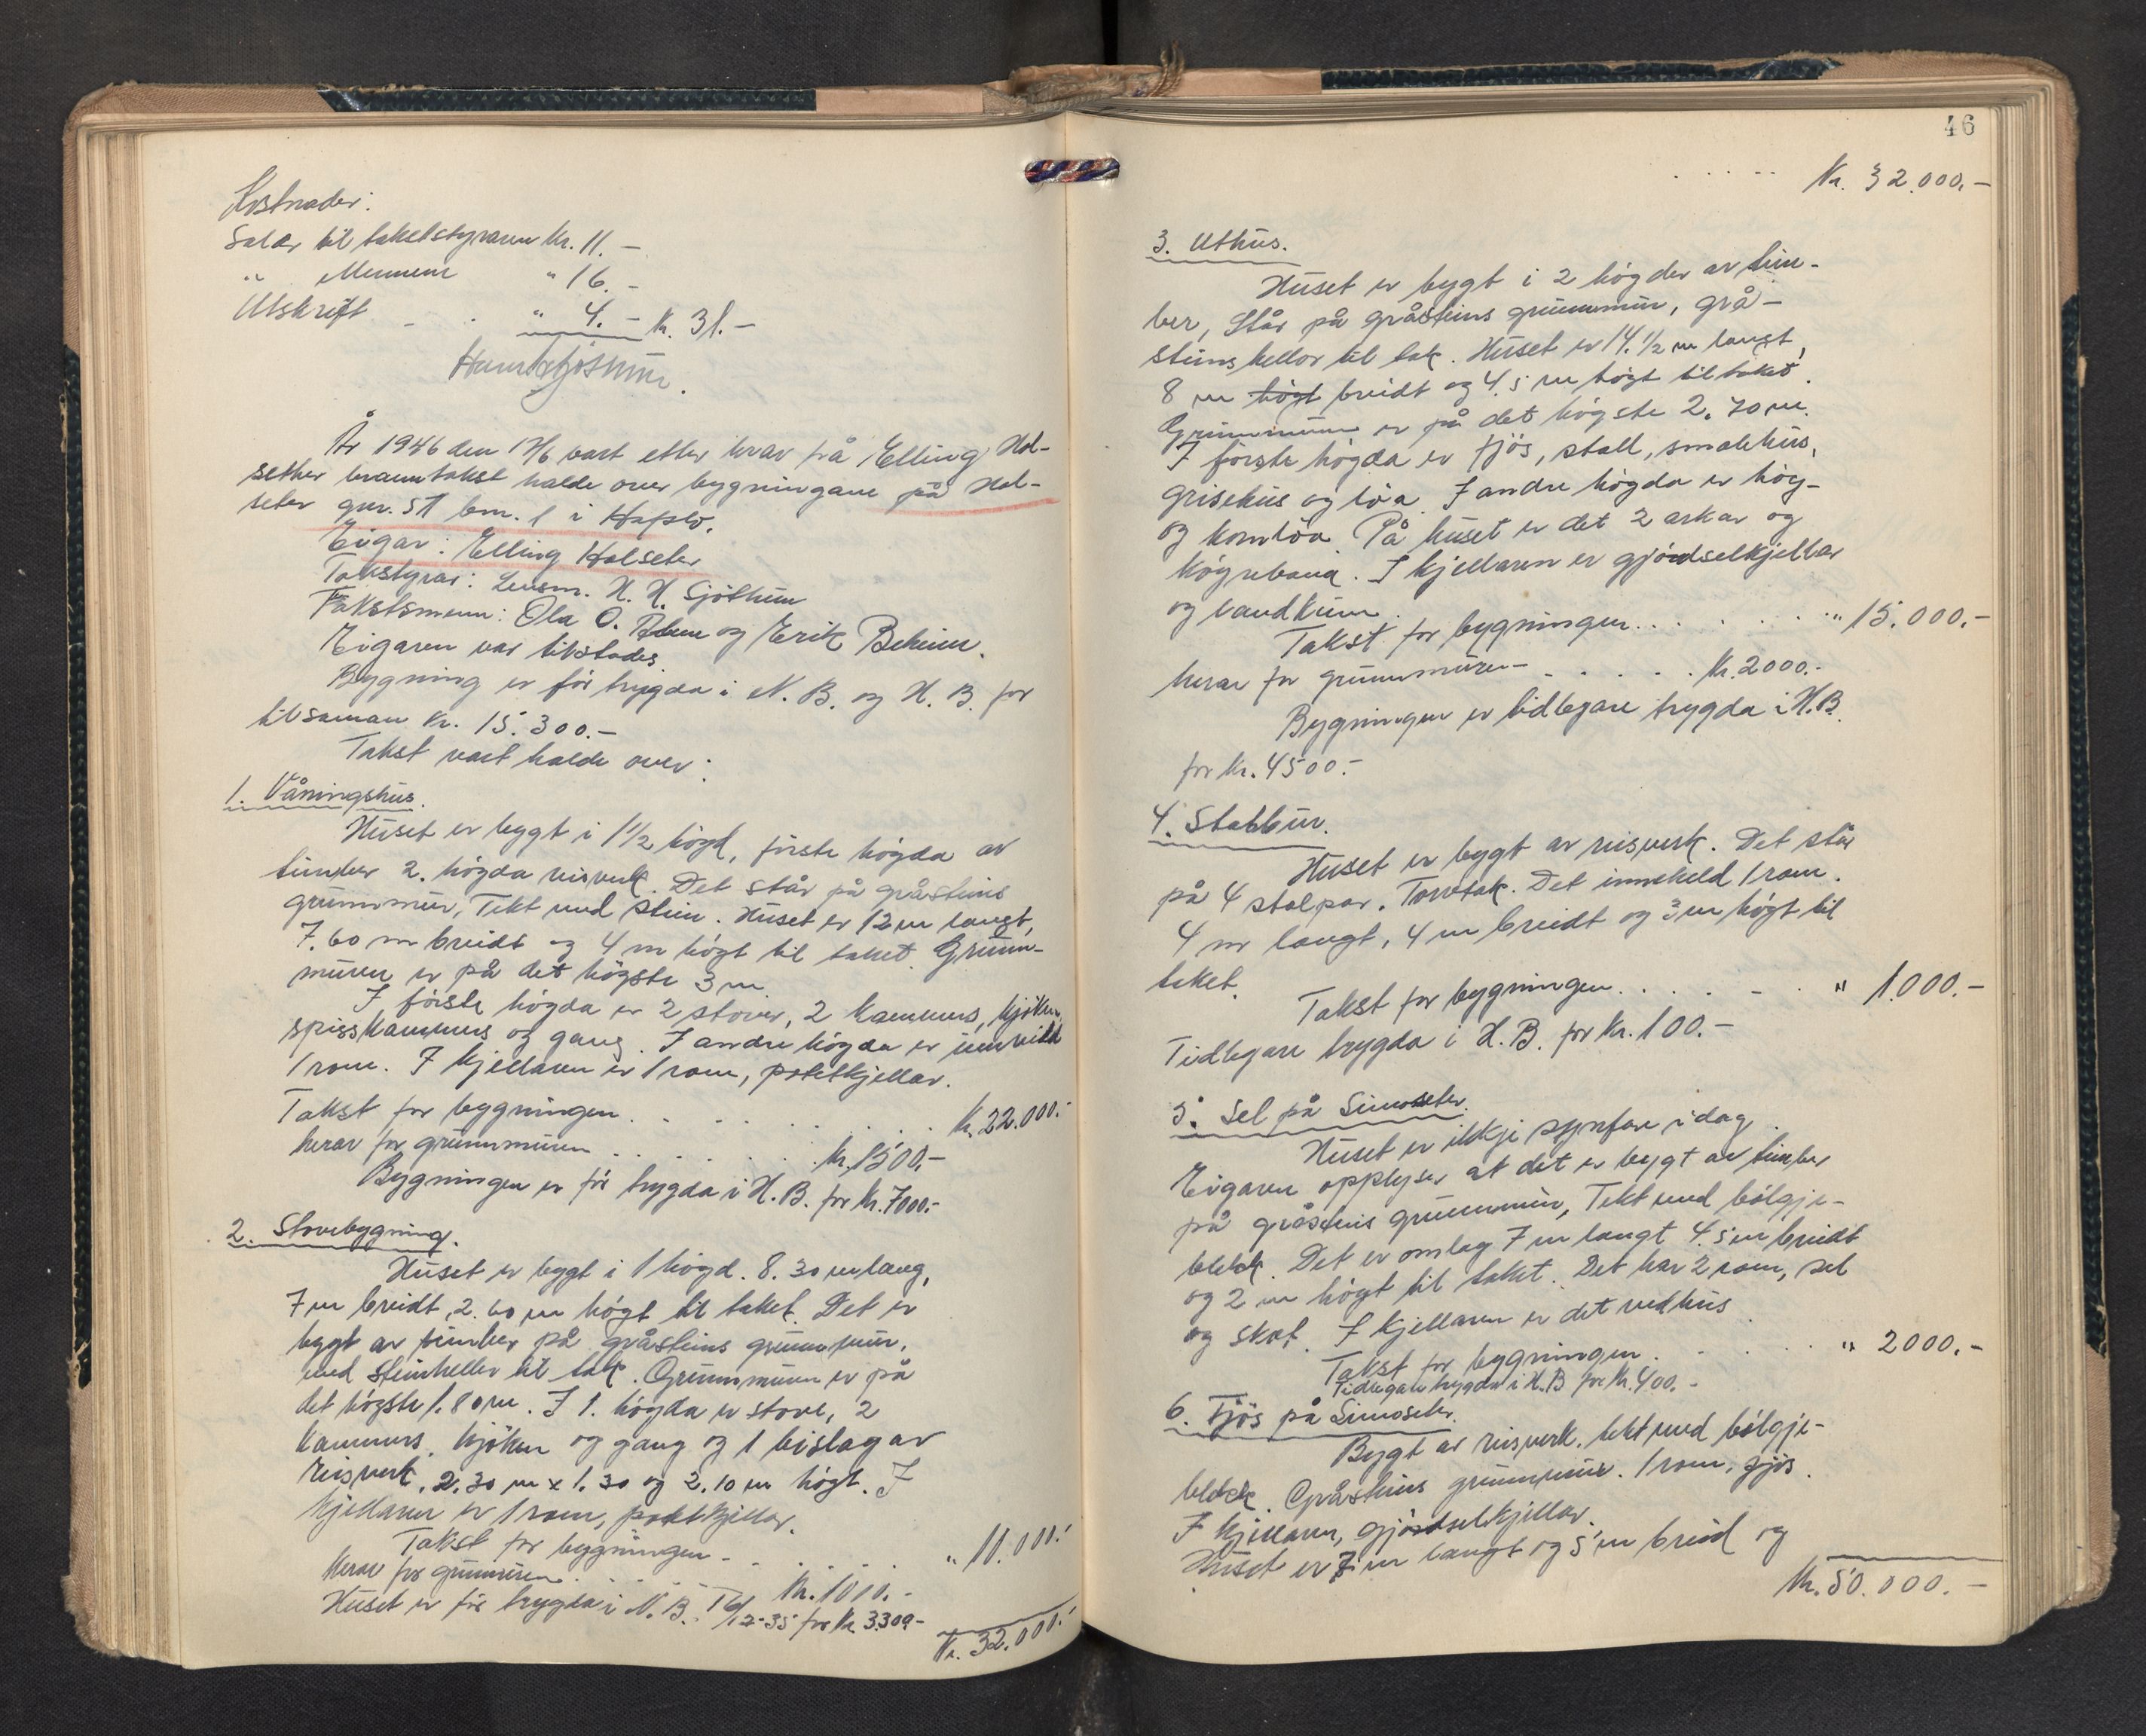 Kostnader:
Salær til takststyraren Kr. 11.-
" Mennene " 16.-
Utskrift - . " 4.- Kr. 31.-
År 1946 den 17/6 vart etter krav frå Elling Hol-
sether branntakst halde over bygningane på Hol-
seter gnr. 51 bnr. 1 i Hafslo.
Eigar: Elling Holseter
Takstyrar: Lensm. H. H. Sjøthun
Takstsmenn: Ola O. og Erik Beheim.
Eigaren var tilstades.
Bygning er før trygda i N. B. og H. B. for
tilsaman Kr. 15.300.-
Takst vart halde over:
1. Våningshus.
Huset er bygt i 1 1/2 høgd, første høgda av
timber 2. høgda reisverk. Det står på gråsteins
grunnmur, Tekt med stein. Huset er 12 m langt,
7.60 m breidt og 4 m høgt til taket. Grunn-
muren er på det høgste 3 m.
I første høgda er 2 stover, 2 kammers, kjøken,
spisskammers og gang. I andre høgda er innreidd
1 rom. I kjellaren er 1 rom, potetkjellar.
Takst for bygningen . - - . . . . Kr. 22.000.-
herav for grunnmuren . . . . . Kr. 1500.-
Bygningen er før trygda i H. B. for Kr. 7000.-
2. Stovebygning.
Huset er bygt i 1 høgd. 8.30 m lang,
7 m breidt, 2.60 m høgt til taket. Det er
bygt av timber på gråsteins grunnmur,
med steinheller til tak. Grunnmuren er på
det høgste 1.80 m. I 1. høgda er stove, 2
kammers, kjøken og gang og 1 bislag av
reisverk, 2.30 m x 1.30 og 2.10 m høgt. I
kjellaren er 1 rom, potetkjellar.
Takst for bygningen - . . . . . " 11.000.-
Herav for grunnmuren . . . . Kr. 1010.-
Huset er før trygda i N. B. 16/12-35 for Kr. 3309-
Kr. 32.000.-
46
. . . . . Kr. 32.000.-
3. Uthus.
Huset er bygt i 2 høgder av tim-
ber, Står på gråsteins grunnmur, grå-
steinshellor til tak. Huset er 14.1/2 m langt,
8 m høgt breidt og 4.5 m høgt til taket.
Grunnmuren er på det høgste 2.70 m.
I første høgda er fjøs, stall, smalehus,
grisehus og løa. I andre høgda er høy-
og kornløa. På huset er det 2 arkar og
høgrebana. I kjellaren er gjødselkjellar
og landkum.
Takst for bygningen . . . . . . " 15.000.-
herav for grunnmuren - . . . . . Kr. 2000.-
Bygningen er tidlegare trygda i H.B.
for Kr. 4500.-
4. Stabbur.
Huset er bygt av reisverk. Det står
på 4 stolpar. Torvtak. Det inneheld 1 rom.
4 m langt, 4 m breidt og 3 m høgt til
taket.
Takst for bygningen . . . . . . " 1.000.-
Tidlegare trygda i H. B. for Kr. 100.-
5. Sel på Simoseter.
Huset er ikkje synfare idag.
Eigaren opplyser at det er bygt av timber
på gråsteins grunnmur, Tekt med bølgje-
blekk. Det er omlag 7 m langt 4.5 m breidt
og 2 m høgt til taket. Det har 2 rom, sel
og skot. I kjellaren er det vedhus.
Takst for bygningen . . . . . " 2000.-
Tidlegare trygda i H.B for Kr. 400.-
6. Fjøs på Simoseter.
Bygt av reisverk, tekt med bølgje-
blekk. Gråsteins grunnmur. 1 rom, fjøs.
I kjellaren, gjødselkjellar.
Huset er 7 m langt og 5 m breid og
Kr. 50.000.-